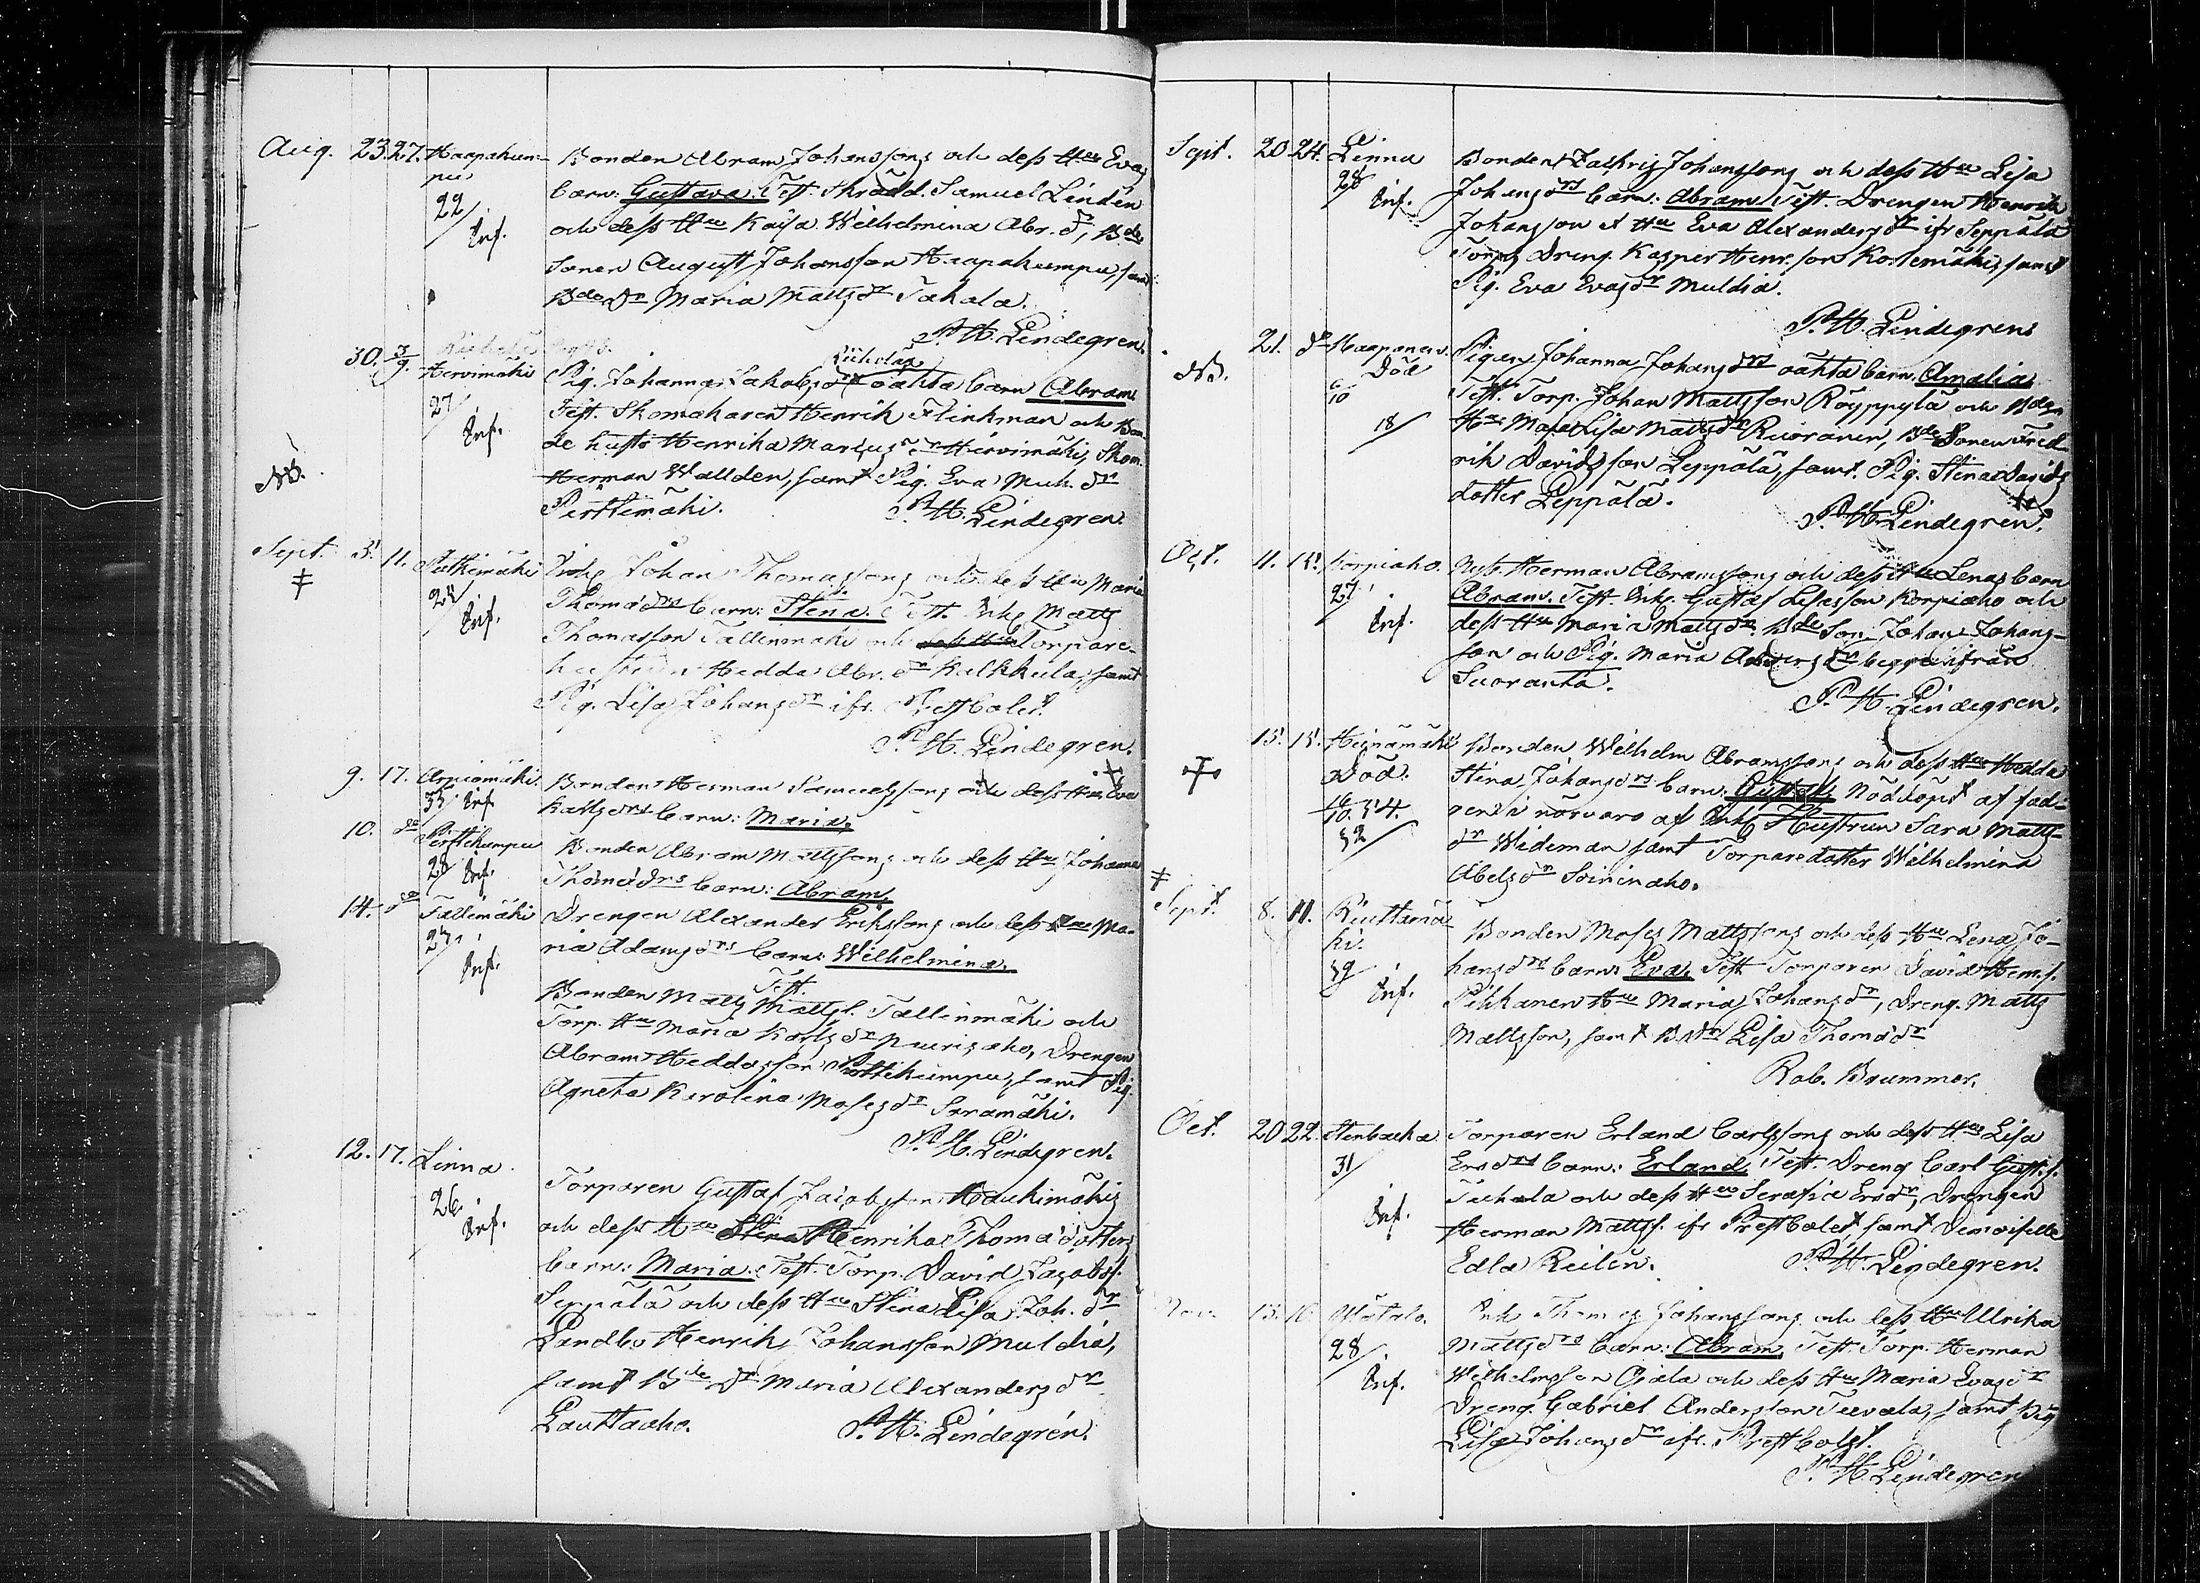 Aug. 23. 27. Haapakum- Bonden Abram Johanssons och dess Hu Eva
pu barn: Gustava. Test. Skrädd. Samuel Lindén
22/ och dess Hu Kaisa Wilhelmina Abr. dr, Bde
Inf. Sonen August Johansson Haapakumpu, samt
Bde dr Maria Matts dr Takala.
P. H. Lindegren.
Riihelä
30. 3/9. Hirvimäki Pig. Johanna Jakobs drs oäkta barn Abram
27/ Test. Skomakaren Henrik Flinkman och Bon-
Inf. de hustr Henrika Marius dr Hirvimäki, Skom.
NB. Herman Wallden, samt Pig. Eva Mich. dr
Perttimäki. P. H. Lindegren.
Sept. 5. 11. Johan Thomassons och dess Hu Maria
Thomæ drs barn: Stina. Test. Inh. Matts
Inf. Thomasson Tallinmäki och Torpare-
hustrun Hedda Abr. dr Kalkkula, samt
Pig. Lisa Johans dr ifr. Prestbolet.
P. H. Lindegren.
9. 17. Arpiomäki. Bonden Herman Samuelssons och dess Hu Eva
35/ Inf. Matts drs barn: Maria.
10. do Perttikumpu Bonden Abram Mattssons och dess Hu Johanna
28/ Inf. Thomæ drs barn: Abram.
14. do Tällimäki Drengen Alexander Erikssons och dess Hu Ma-
27/ ria Adams drs barn: Wilhelmina.
Inf. Test.
Bonden Matts Matts s. Tallinmäki och
Torp. Hu Maria Karls dr, Drengen
Abram Heddasson Perttikumpu, samt Pig.
Agneta Karolina Moses dr Saramäki.
P. H. Lindegren.
12. 17. Linna Torparen Gustaf Jacobsson Haukimäkis
26/ och dess Hu Henrika Thomæ dotters
Inf. barn: Maria. Test. Torp. David Jacobs s.
Seppälä och dess Hu Stina Lisa Joh. dr
Landbo Henrik Johansson Muldia,
samt Bde dr Maria Alexanders dr
Lauttaaho. P. H. Lindegren.
Sept. 20 24. Linna Bonden Zachris Johanssons och dess Hu Lisa
28/ Johans drs barn: Abram. Test. Drengen Henrik
Inf. Johansson & Hu Eva Alexanders dr ifr Seppälä
Dreng. Kasper Henr. son Kostemäki, samt
Pig. Eva Evas dr Muldia.
P. H. Lindegren
21. do Haaponen. Pigan Johanna Johans drs oäkta barn. Amalia
NB. Död Test. Torp. Johan Mattsson Röyppylä och Bdens
6/10 Hu Maja Lisa Matts dr Ruoranen, Bde Sonen Fred-
18/ rik Davidsson Leppälä, samt. Pig. Stina Davids
dotter Leppälä.
P. H. Lindegren.
Oct. 11. 15. Korpiaho. Herman Abramssons och dess Hu Lenas barn
27/ Abram. Test. Inh. Gustaf Lisasson Korpiaho och
Inf. dess Hu Maria Matts dr Bde Son Johan Johans-
son och Pig. Maria Anders dr begge ifrån
Suoranta.
P. H. Lindegren.
13. 15. Heinämäki Bonden Wilhelm Abramssons och dess Hu Hedda
Död. Stina Johans drs barn: Gustaf. Nöddöpt af fad-
dern i närvaro af Inh. Hustrun Sara Matts
32/ dr Wideman samt Torparedotter Wilhelmina
Abels dr Soininaho.
Sept. 8. 11. Riuttamä- Bonden Moses Mattssons och dess Hu Lena Jo-
ki. hans drs barn: Eva. Test. Torparen David Hem. s.
39/ Pihkanen Hu Maria Johans dr, Dreng. Matts
Inf. Mattsson, samt B. dr Lisa Thomæ dr
Rob. Brummer.
Oct. 20 22. Stenbacka Torparen Erland Carlssons och dess Hu Lisa
31/ Ers drs barn: Erland. Test. Dreng Carl Gust. s.
Inf. Tuhala och dess Hu Serafia Ers dr, Drengen
Herman Matts s. ifr Prestbolet samt Demoiselle
Edla Reilin. P. H. Lindegren.
Nov. 13. 16. Thomas Johanssons och dess Hu Ulrika
28/ Matts drs barn: Abram. Test. Torp. Herman
Inf. Wilhelmsson Ojala och dess Hu Maria Evas dr
Dreng. Gabriel Andersson Tuvala, samt Pig
Lisa Johans dr ifr. Prestbolet.
P. H. Lindegren